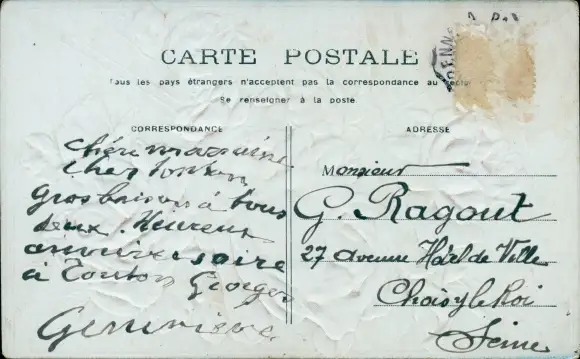 CARTE POSTALE
Tous les pays étrangers n'acceptent pas la correspondance au recto
Se renseigner à la poste
CORRESPONDANCE
ADRESSE
chère marraine
cher tonton
gros baisers à tous
deux. Heureux
anniversaire
à Tonton Georges
Geneviève
Monsieur
G. Ragout
27 avenue Hôtel de Ville
Choisy le Roi
Seine